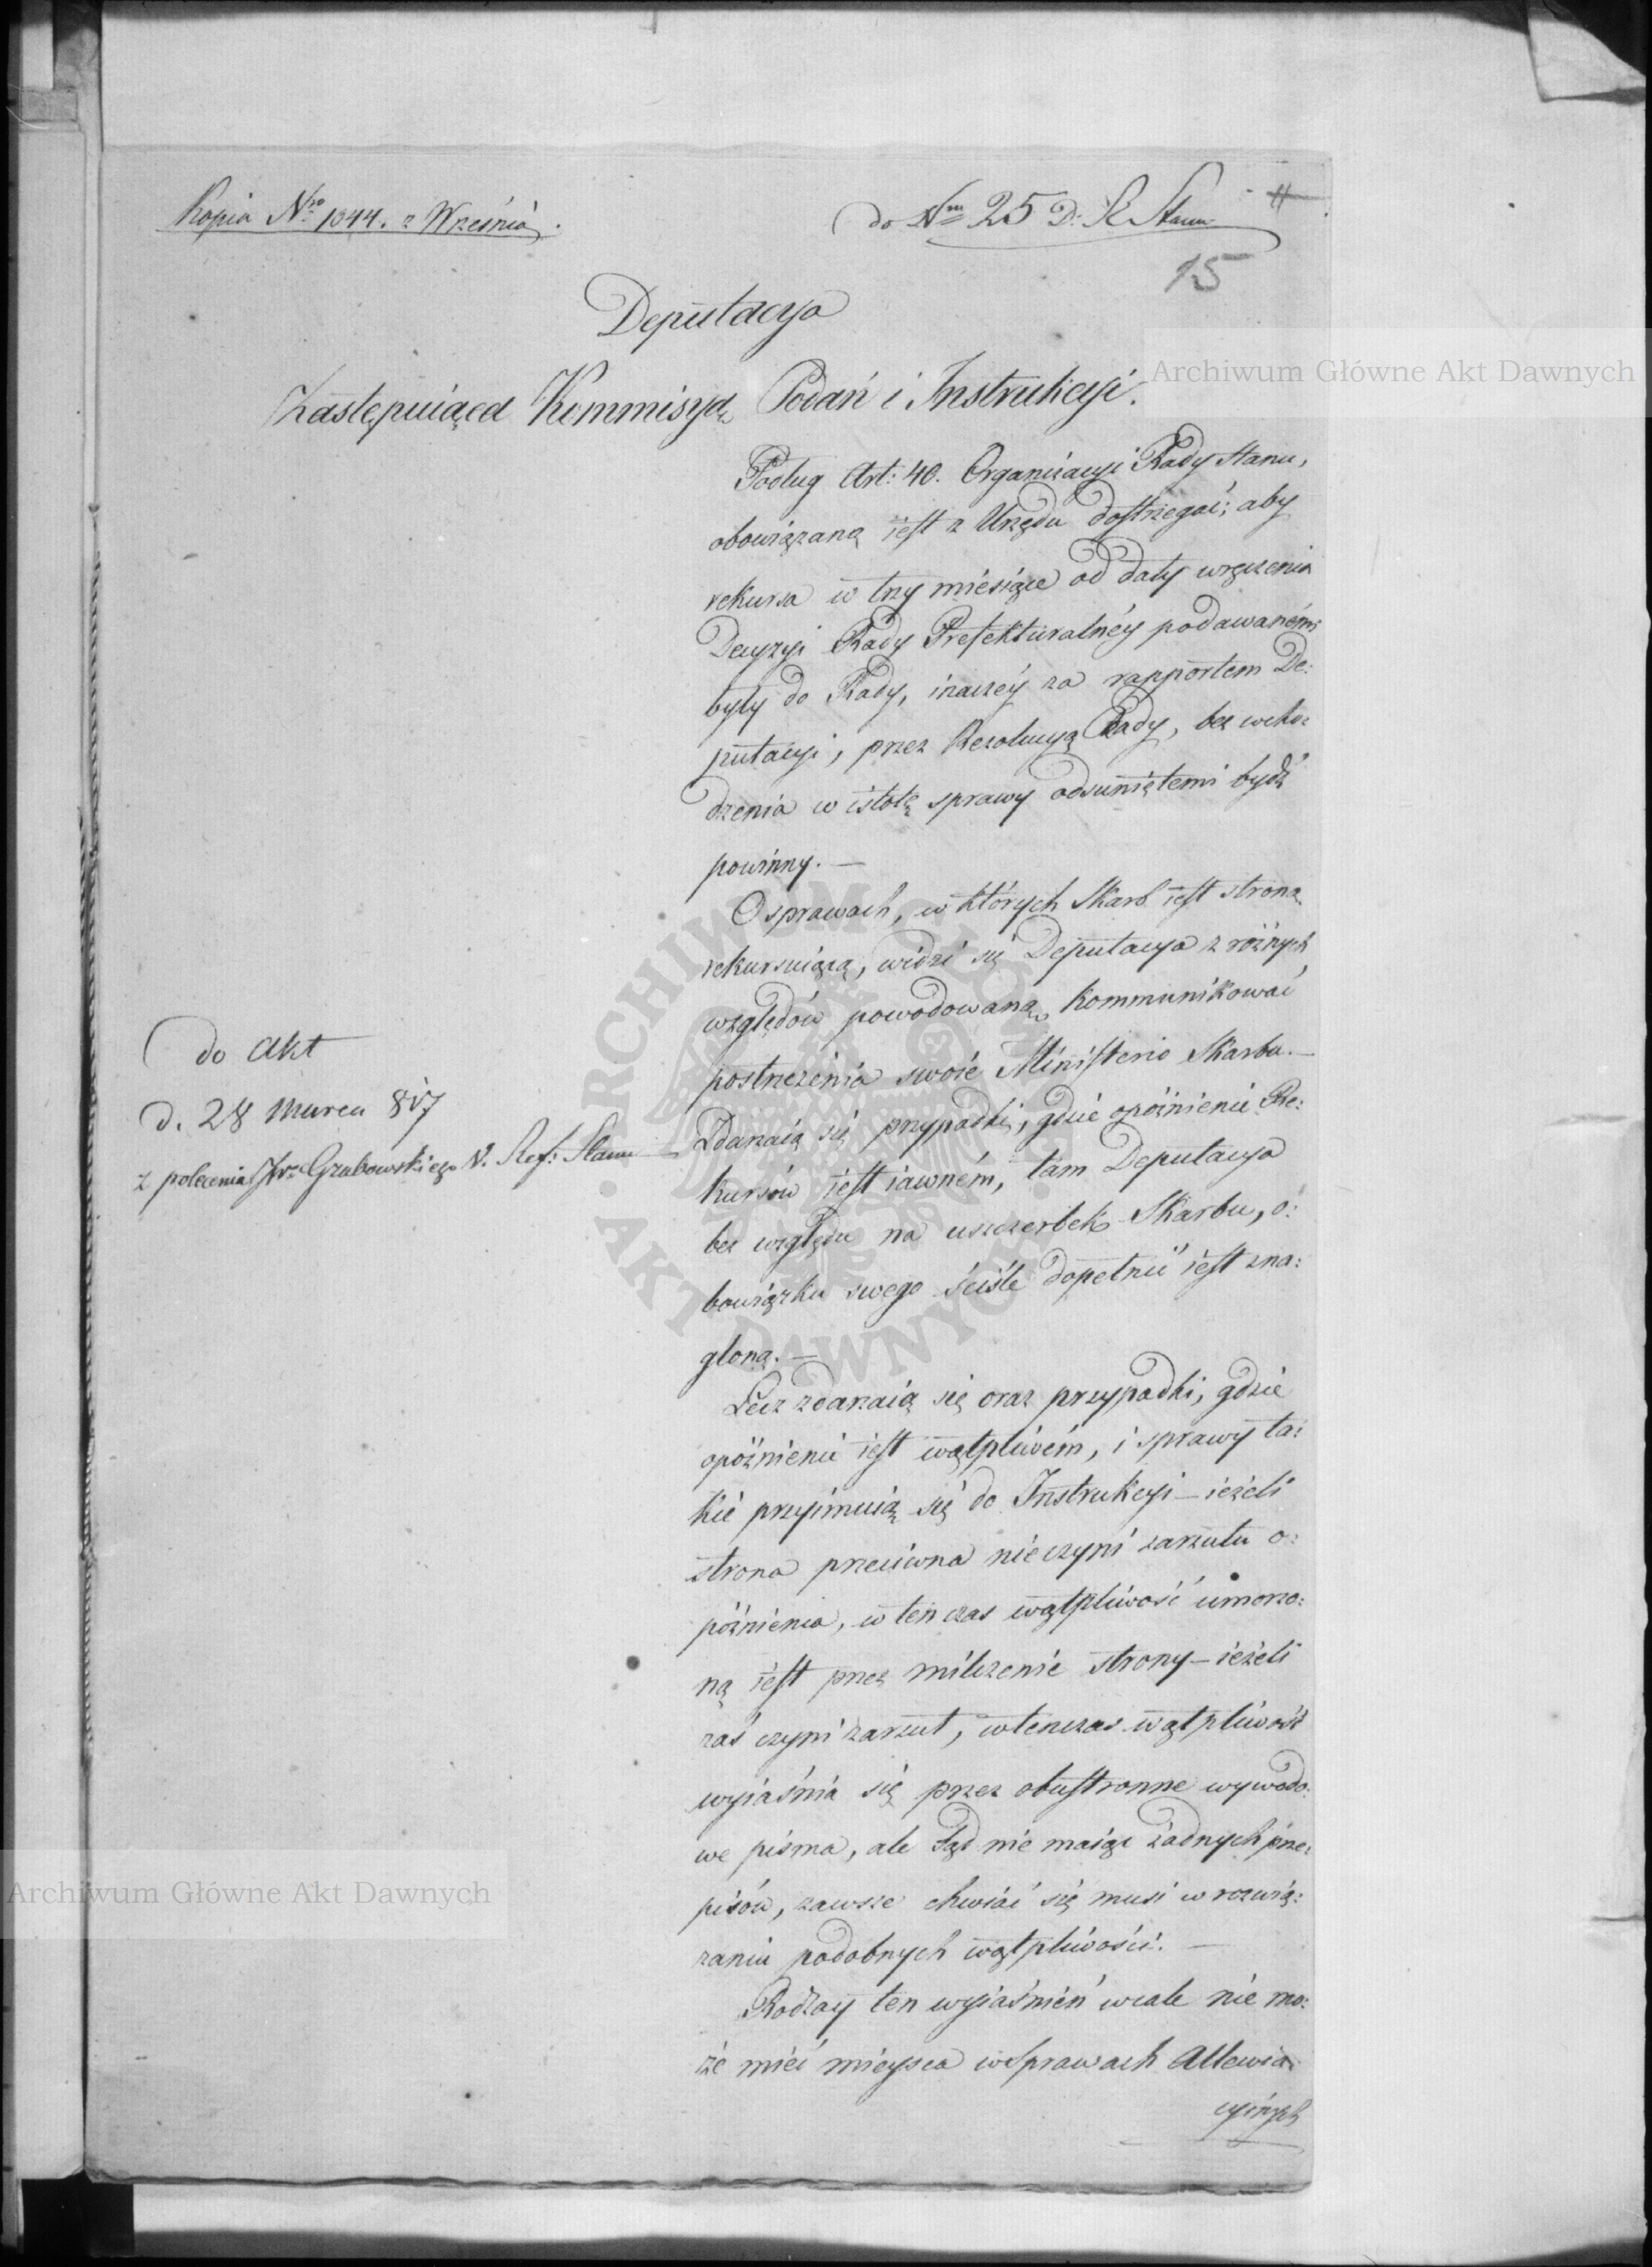 Kopia Nro 1044. z Września.
do Nru 25 D. R. Stanu
11
15
Deputacya
Zastępuiąca Kommisyą Podań i Instrukcyi.
Podług Art: 40. Organizacyi Rady Stanu,
obowiązaną iest z Urzędu dostrzegać; aby
rekursa w trzy miesiące od daty wręczenia
Decyzyi Rady Prefekturalnéy podawanémi
były do Rady, inaczéy za rapportem De:
putacyi, przez Rezolucyą Rady, bez wcho:
dzenia w istotę sprawy odsuniętemi bydź
powinny. —
O sprawach, w których Skarb iest stroną
rekursuiącą, widzi się Deputacya z różnych
względów powodowaną, kommunikować
postrzeżenia swoie Ministerio Skarbu. —
Zdarzaią się przypadki, gdzie opóźnienie Re:
kursów iest iawném, tam Deputacya
bez względu na uszczerbek Skarbu, o:
bowiązku swego ściśle dopełnić iest zna:
gloną. —
Lecz zdarzaią się oraz przypadki, gdzie
opóźnienie iest wątpliwém, i sprawy ta:
kie przyimuią się do Instrukcyi — ieżeli
strona przeciwna nieczyni zarzutu o:
póżnienia, w ten czas wątpliwość umorzo:
ną iest przez milczenie strony — ieżeli
zaś czyni zarzut, wtenczas wątpliwość
wyiaśnia się przez obustronne wywodo:
we pisma, ale Sąd nie maiąc żadnych prze:
pisów, zawsze chwiać się musi w rozwią:
zaniu podobnych wątpliwości. —
Rodzay ten wyiaśnień wcale nie mo:
że mieć mieysca w Sprawach Allewia:
cyinych
do Akt
d. 28 Marca 817
z polecenia JW. Grabowskiego N. Ref: Stanu
Archiwum Główne Akt Dawnych
ARCHIWUM GŁÓWNE · AKT DAWNYCH ·
Archiwum Główne Akt Dawnych